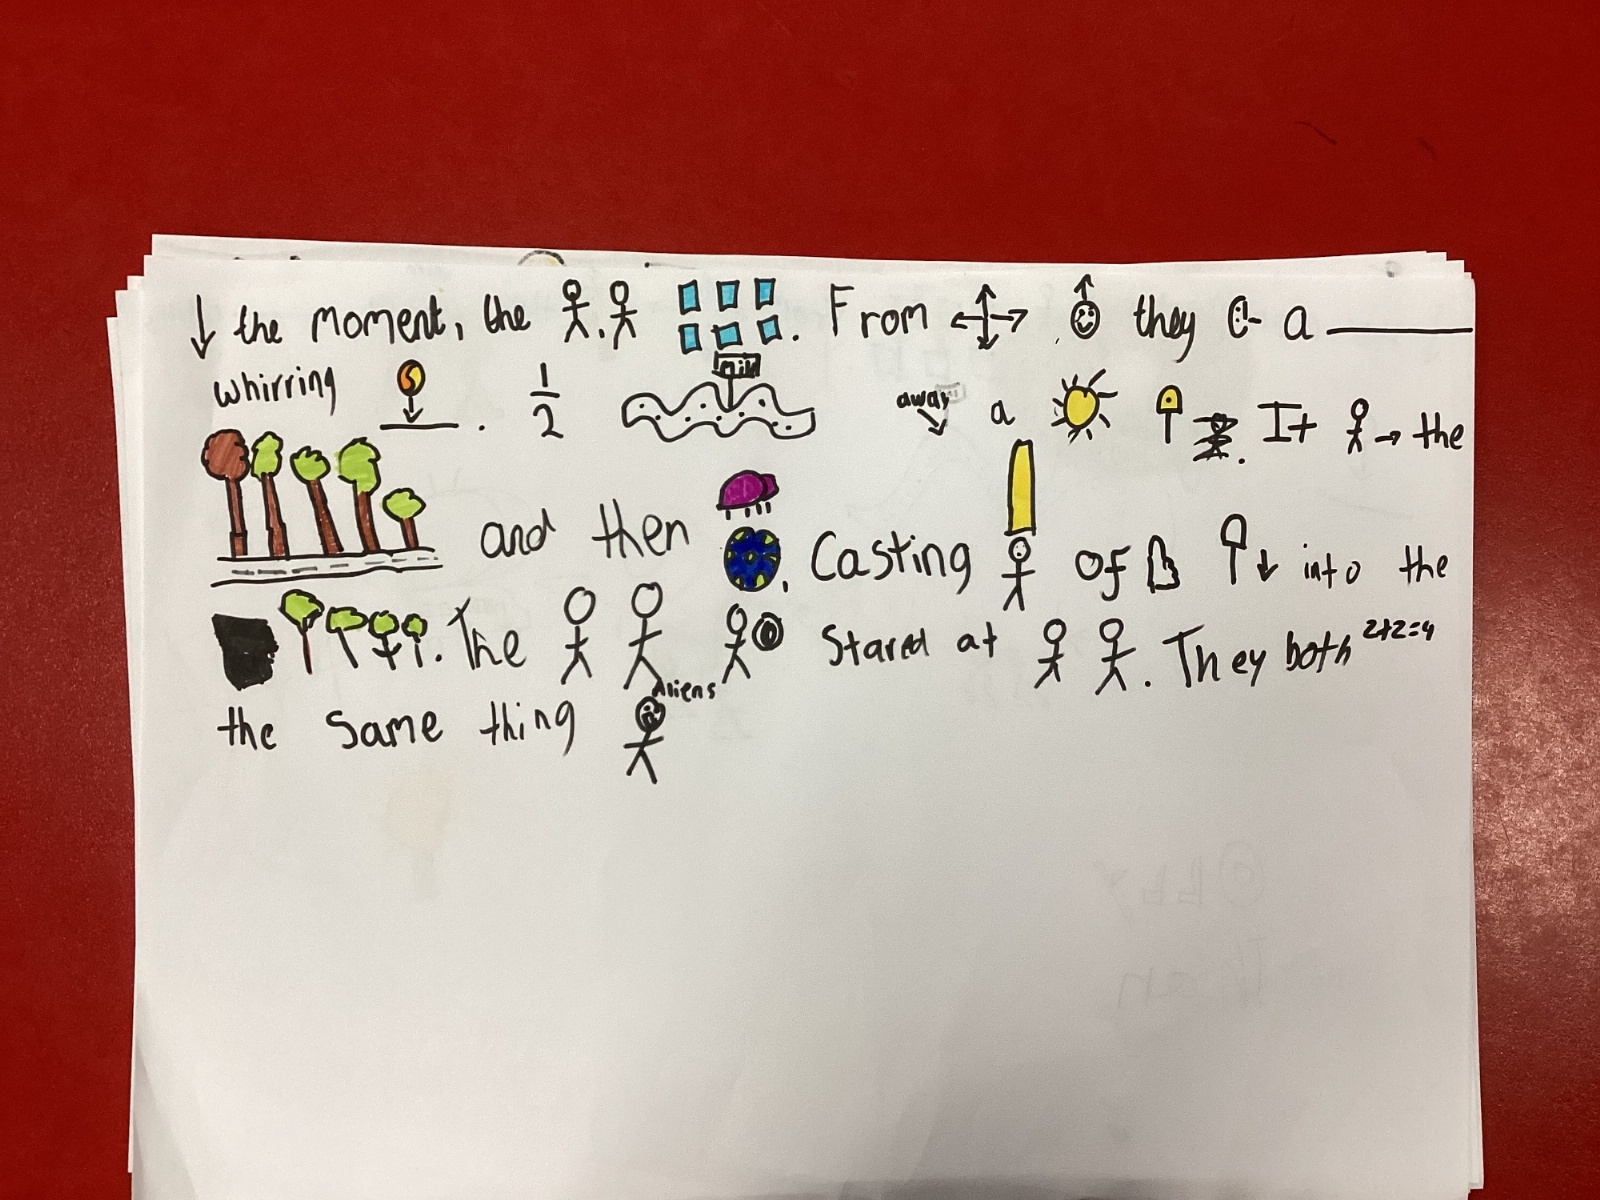 the moment, the . From they a
whirring . 1/2 mile away a . It the
and then . Casting of into the
. The Stared at . They both 2+2=4
the Same thing Aliens